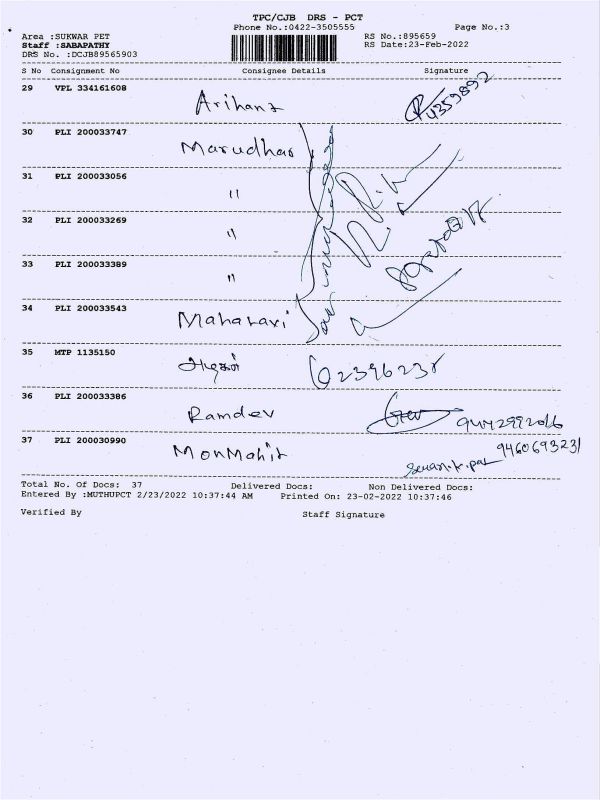 TPC/CJB DRS - PCT
Phone No.:0422-3505555 Page No.:3
Area :SUKWAR PET RS No.:895659
Staff :SABAPATHY RS Date:23-Feb-2022
DRS No. :DCJB89565903
S No Consignment No Consignee Details Signature
29 VPL 334161608 Arihant 4359892
30 PLI 200033747 Marudhar
31 PLI 200033056 "
32 PLI 200033269 "
33 PLI 200033389 "
34 PLI 200033543 Maharaxi
35 MTP 1135150
36 PLI 200033386 Ramdev
37 PLI 200030990 MonMohit 9460693231
Total No. Of Docs: 37 Delivered Docs: Non Delivered Docs:
Entered By :MUTHUPCT 2/23/2022 10:37:44 AM Printed On: 23-02-2022 10:37:46
Verified By Staff Signature